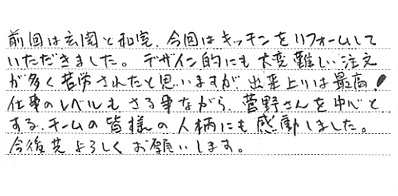 前回は玄関と和室、今回はキッチンをリフォームして
いただきました。デザイン的にも大変難しい注文
が多く苦労されたと思いますが、出来上りは最高!
仕事のレベルもさる事ながら、菅野さんを中心と
する、チームの皆様の人柄にも感動しました。
今後共よろしくお願いします。